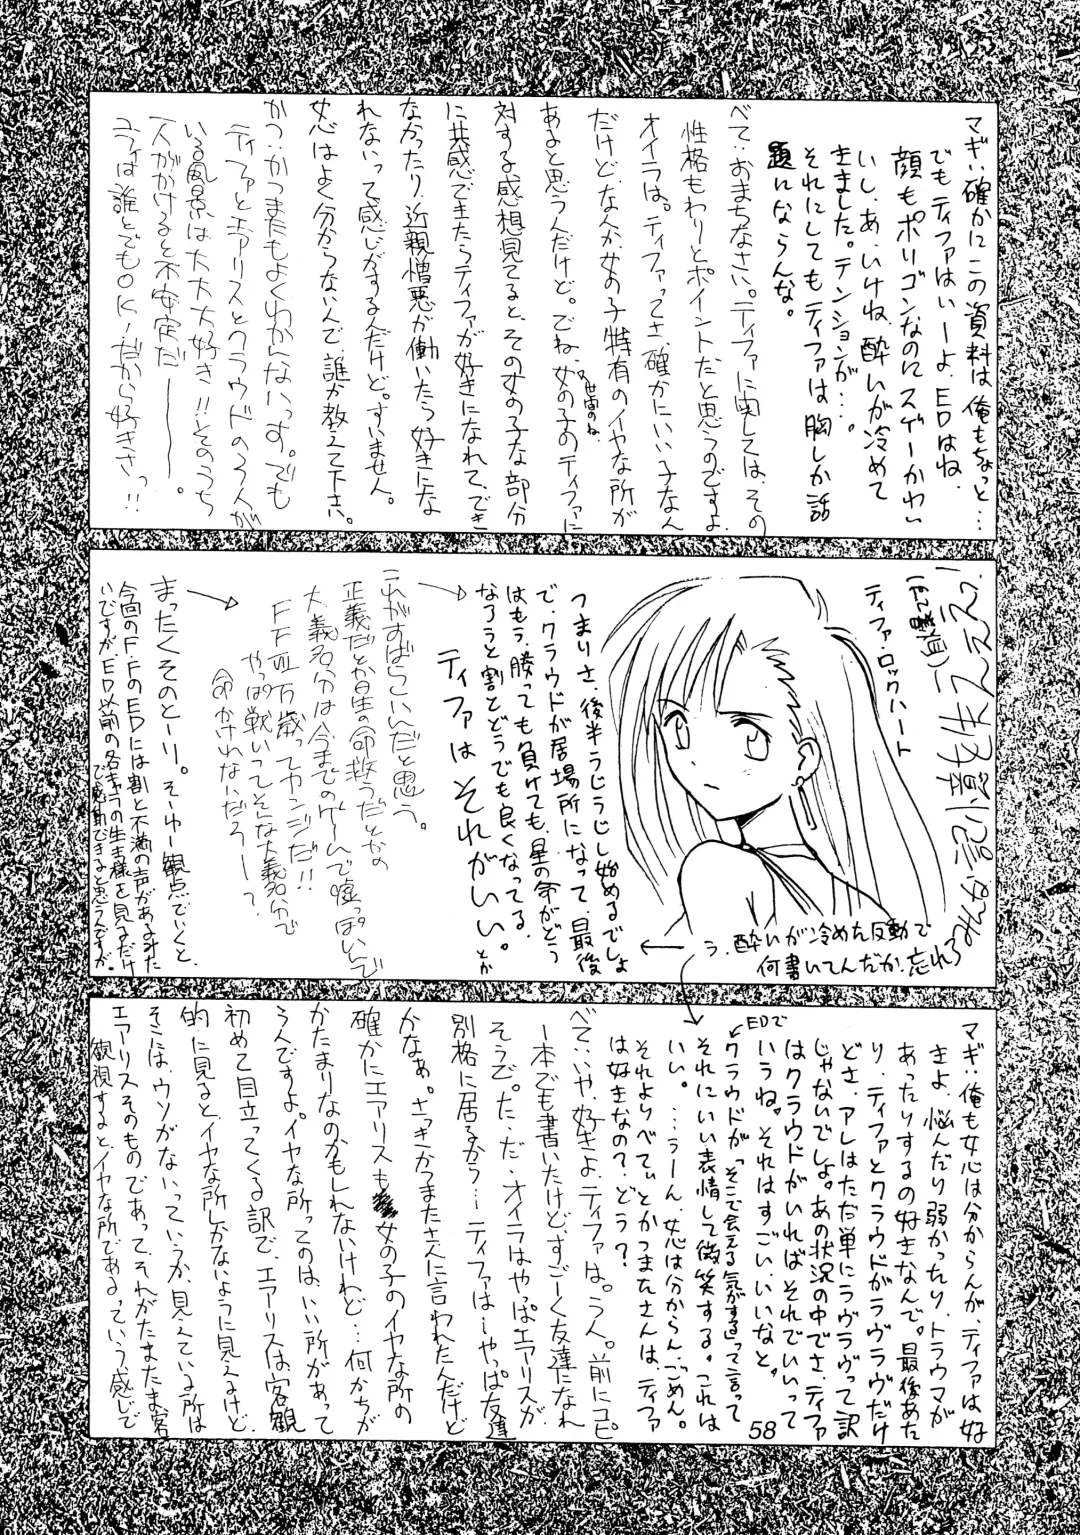 マギ：確かにこの資料は俺もちょっと…
でもティファはいーよ、EDはね、
顔もポリゴンなのにスゲーかわい
いし、あ、いけね、酔いが冷めて
きました。テンションが…。
それにしてもティファは胸しか話
題にならんな。
べて：おまちなさい。ティファに関しては、その
性格もわりとポイントだと思うのですよ
オイラは。ティファってさ、確かにいい子なん
だけど、なんか、女の子特有のイヤな所が
あると思うんだけど。でね、女の子のティファに
対する感想見てると、その女の子な部分
に共感できたらティファが好きになれて、でき
なかったり、近親憎悪が働いたら好きにな
れないって感じがするんだけど。すいません。
女心はよく分からないんで、誰か教えて下さい。
かつ：かつまたもよくわかんないっす。でも
ティファとエアリスとクラウドの3人が
いる風景は大大大好き!!そのうち
一人がかけると不安定だーーー。
ユフィは誰とでもOK!だから好きさっ!!
ティファ・ロックハート
う、酔いが冷めた反動で
何書いてんだか、忘れろ
つまりさ、後半うじうじし始めるでしょ
で、クラウドが居場所になって、最後
はもう、勝っても負けても、星の命がどう
なろうと割とどうでも良くなってる、
ティファはそれがいい。とか
これがすばらしいんだと思う。
正義だとか星の命救うだとかの
大義名分は今までのゲームで嘘っぽいんで
FFⅦ万歳ってカンジだ!!
やっぱ戦いってそんな大義名分で
命かけれないだろー？
まったくそのとーり。そーゆー観点でいくと、
今回のFFのEDには割と不満の声があるみた
いですが、ED以前の各キャラの生き様を見るだけ
で感動できると思うんですが。
マギ：俺も女心は分からんが、ティファは好
きよ、悩んだり弱かったり、トラウマが
あったりするの好きなんで。最後あた
り、ティファとクラウドがラヴラヴだけ
どさ、アレはただ単にラヴラヴって訳
じゃないでしょ。あの状況の中でさ、ティファ
はクラウドがいればそれでいいって
いうね。それはすごいいいなと。
EDで
クラウドが「そこで会える気がする」って言って
それにいい表情して微笑する。これは
いい。…うーん、女心は分からん、ごめん。
それよりべてぃとかつまたさんは、ティファ
は好きなの？どう？
べて：いや、好きよ、ティファは。う人。前にコピ
ー本でも書いたけど、すごーく友達になれ
そうで。た、だ、オイラはやっぱエアリスが
別格に居るから…ティファは…やっぱ友達
かなぁ。さっきかつまたさんに言われたんだけど
確かにエアリスも女の子のイヤな所の
かたまりなのかもしれないけれど…何かちが
うんですよ。イヤな所ってのは、いい所があって
初めて目立ってくる訳で、エアリスは客観
的に見るとイヤな所しかないように見えるけど、
そこには、ウソがないっていうか、見えている所は
エアリスそのものであって、それがたまたま客
観視するとイヤな所であるっていう感じで
58